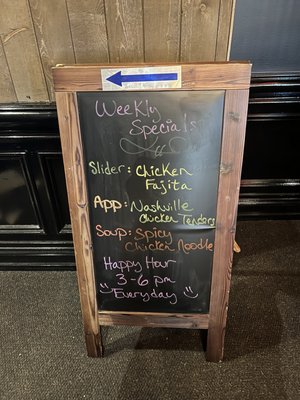 Weekly
Specials
Slider: Chicken
Fajita
App: Nashville
Chicken Tenders
Soup: Spicy
Chicken Noodle
Happy Hour
3-6 pm
Everyday